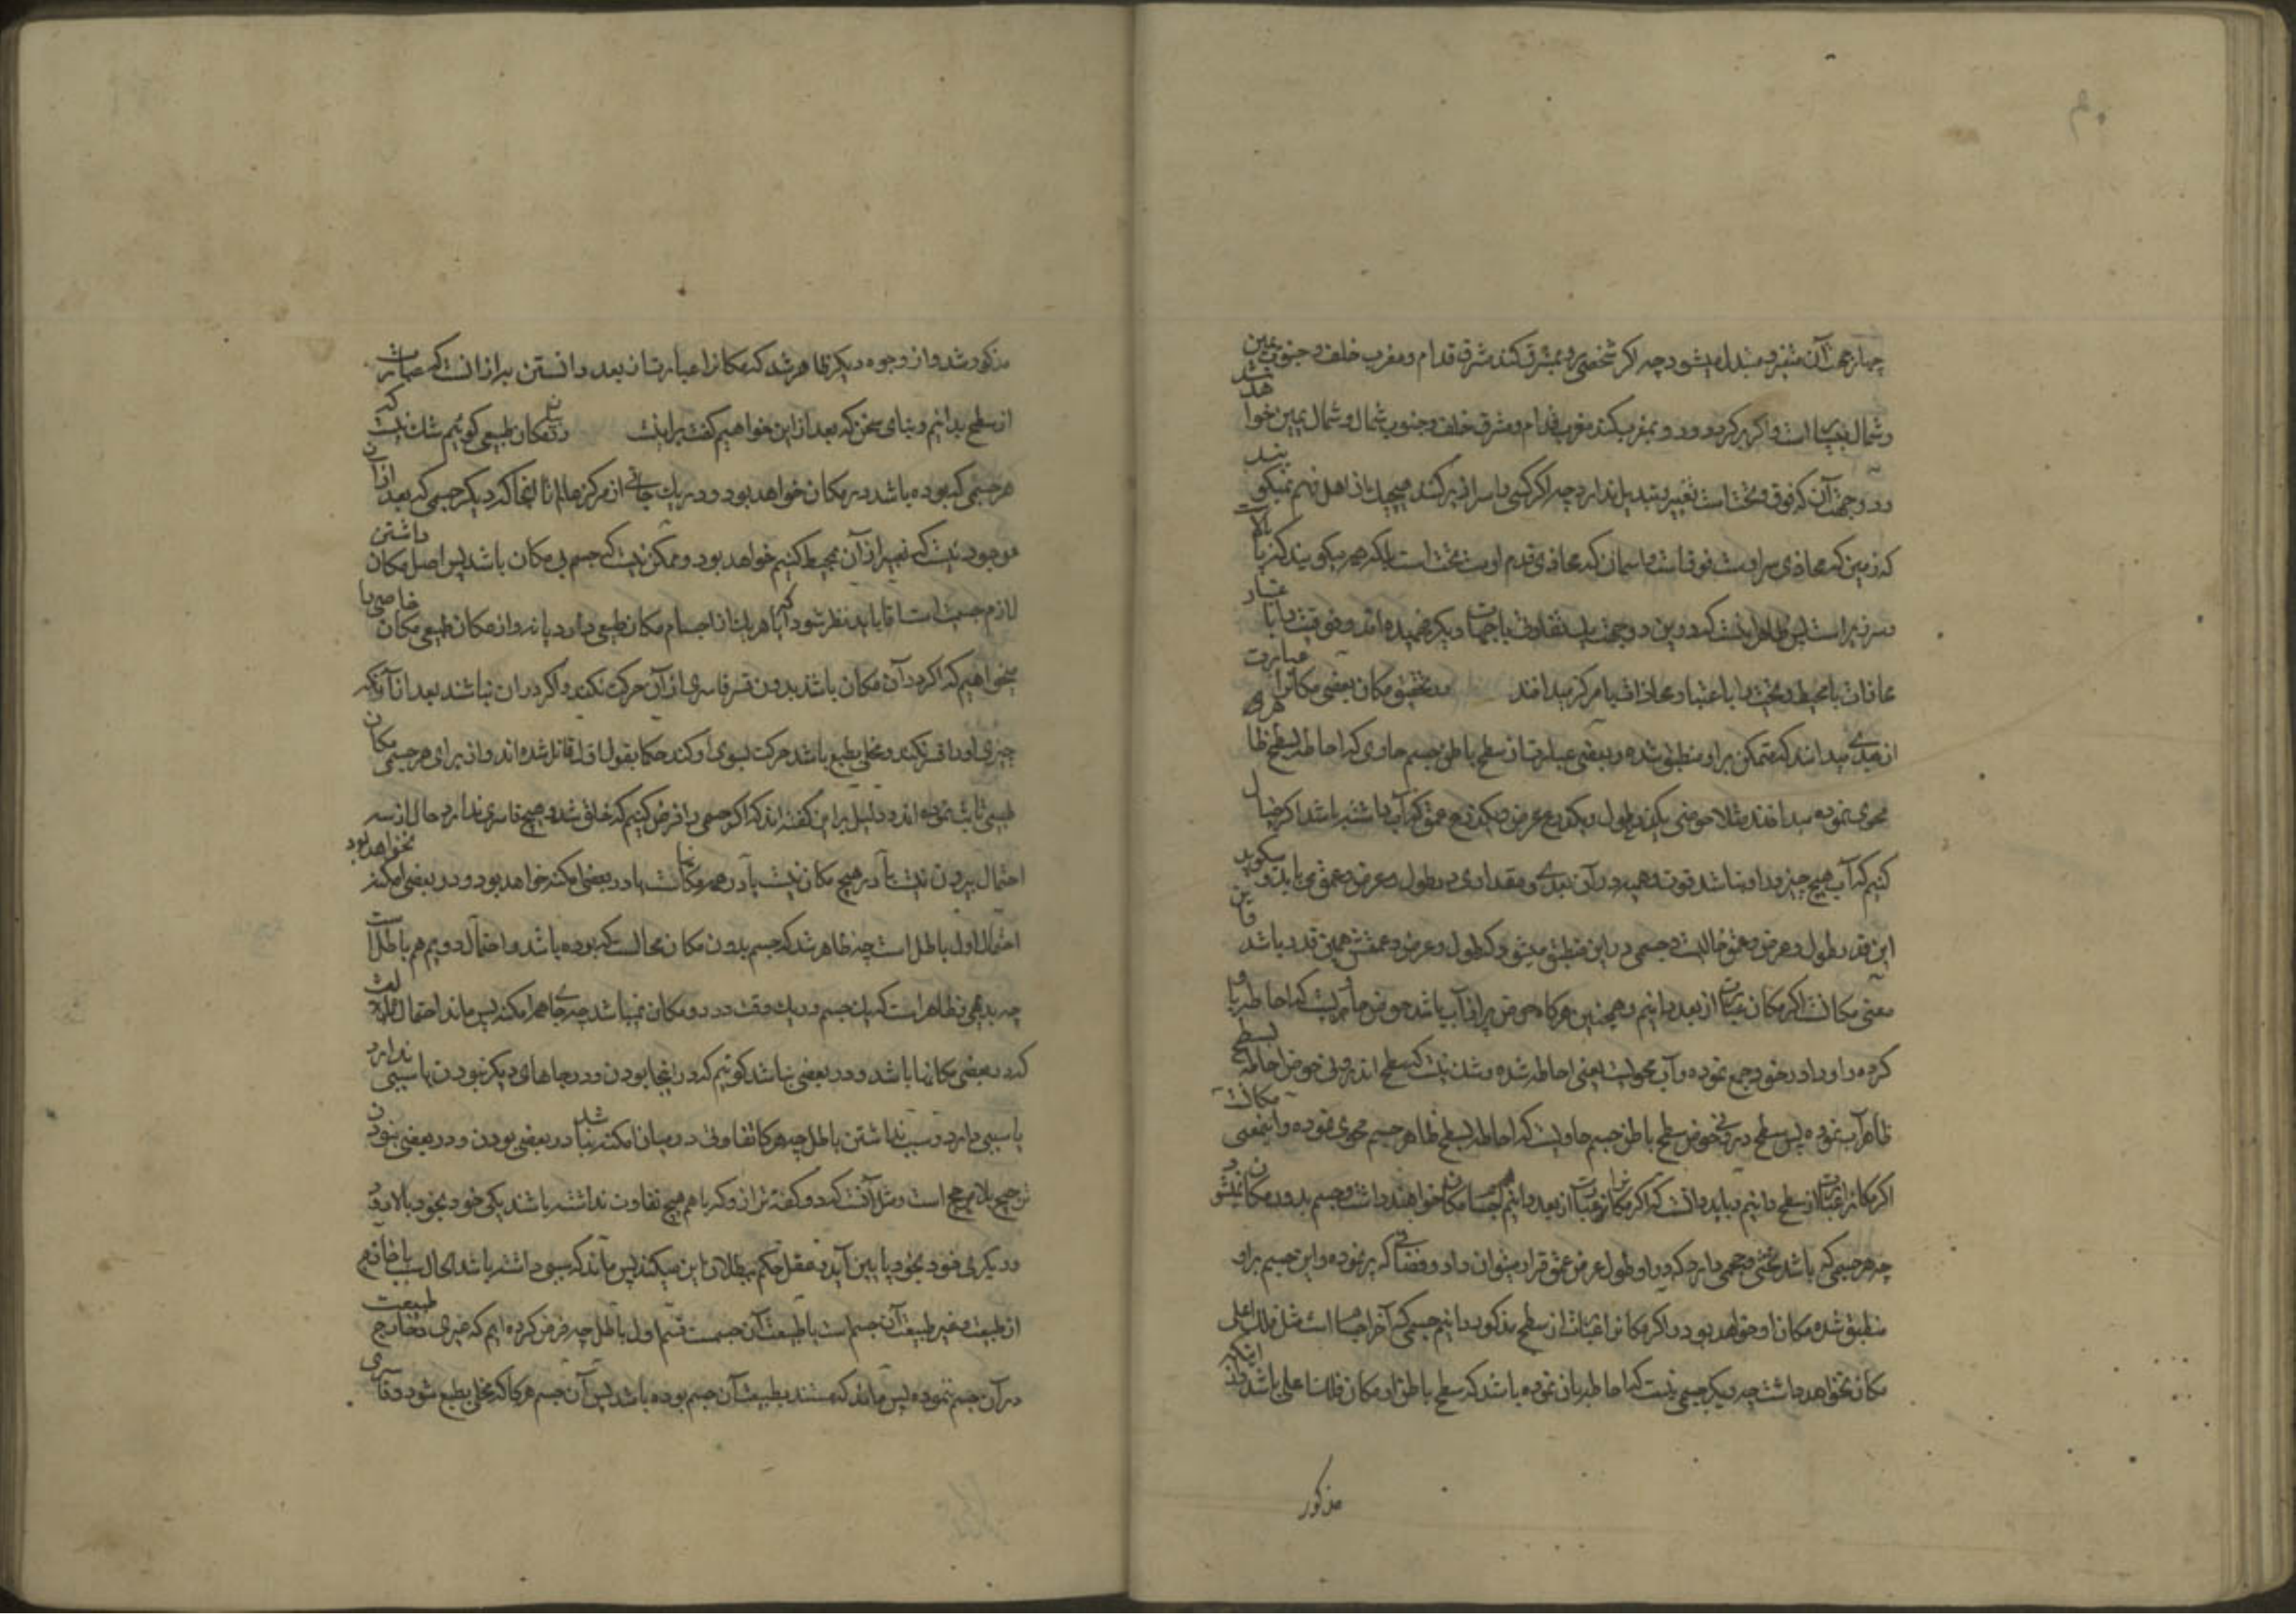 چهار جهت آن متغیر و متبدل میشود چه اگر شخصی رو بمشرق کند مشرق قدام و مغرب خلف و جنوب یمین
و شمال یسار است و اگر برگردد و رو بمغرب کند مغرب قدام و مشرق خلف و جنوب شمال و شمال یمین خواهد شد
و دو جهت آن که فوق و تحت است تغییر و تبدیل ندارد چه اگر کسی را سرازیر کنند هیچیک از اهل فهم نمیگویند
که زمین که محاذی سر اوست فوق است و آسمان که محاذی قدم اوست تحت است بلکه همه میگویند که زیر بالا است
و سر زیر است پس ظاهر اینست که درین دو جهت تفاوتی با جهات دیگر فهمیده اند و فوقیت را باعتبار
محاذات با محیط و تحت را باعتبار محاذات با مرکز میدانند در تحقیق مکان بعضی مکانرا عبارت
از بعدی میدانند که متمکن برو منطبق شده و بعضی عبارت از سطح باطن جسم حاوی که احاطه بسطح ظاهری
محوی نموده میدانند مثلا حوضی یکذرع طول و یکذرع عرض و یکذرع عمق که آب داشته باشد اگر خیال
کنیم که آب هیچ چیز در او نباشد قوت وهمیه در آن بعدی و مقداری در طول و عرض و عمق می یابد و میگوید
این قدر طول و عرض و عمق خالیست و جسمی در این منطبق میشود که طول و عرض و عمقش همین قدر باشد
معنی مکانست اگر مکان عبارت از بعد دانیم و همچنین هرگاه حوض پر از آب باشد حوض حاویست که احاطه باو
کرده و او را در خود جمع نموده و آب محویست یعنی احاطه شده و شک نیست که سطح اندرونی حوض احاطه بسطح
ظاهر آب نموده پس سطح درونی حوض سطح باطن جسم حاویست که احاطه بسطح ظاهر جسم محوی نموده و اینمعنی مکانست
اگر مکانرا عبارت از سطح دانیم و باید دانست که اگر مکانرا عبارت از بعد دانیم همه اجسام مکان خواهند داشت و جسم بدون مکان نمیشود
چه هر جسمی که باشد ثخنی و حجمی دارد که در او طول عرض عمق قرار میتوان داد و فضائی که پر نموده و این جسم برو
منطبق شده مکان او خواهد بود و اگر مکانرا عبارت از سطح مذکور دانیم جسمی که آخر اجسام است مثل فلک اعلی
مکان نخواهد داشت چه دیگر جسمی نیست که احاطه بآن نموده باشد که سطح باطن او مکان فلک اعلی باشد و از اینکه
مذکور
مذکور شد و از وجوه دیگر ظاهر شد که مکانرا عبارت از بعد دانستن به از آنست که عبارت
از سطح بدانیم و بنای سخن که بعد از این خواهیم گفت بر اینست در مکان طبیعی گوئیم شک نیست که
هر جسمی که بوده باشد در مکان خواهد بود و در یک جائی از مرکز عالم تا آنجا که دیگر جسمی که بعد از آن
موجود نیست که تعبیر از آن بمحیط کنیم خواهد بود و ممکن نیست که جسم بی مکان باشد پس اصل مکان داشتن
لازم جسمیت است اما باید نظر شود که آیا هر یک از اجسام مکان طبیعی دارد یا نه و از مکان طبیعی مکان خاصی را
میخواهیم که اگر در آن مکان باشد بدون قسر قاسری از آن حرکت نکند و اگر در آن نباشد بعد از آنکه
چیزی او را قسر نکند و مخلی بطبع باشد حرکت بسوی او کند حکما بقول اول قائل شده اند و از برای هر جسمی مکان
طبیعی ثابت نموده اند و دلیل بر این گفته اند که اگر جسمی را فرض کنیم که خلق شد و هیچ قاسری ندارد حال از سه
احتمال بیرون نیست یا در هیچ مکان نیست یا در همه مکانهاست یا در بعضی امکنه خواهد بود و در بعضی امکنه نخواهد بود
احتمال اول باطل است چه ظاهر شد که جسم بدون مکان محالست که بوده باشد و احتمال دویم هم باطل است
چه بدیهی و ظاهر است که یک جسم در یک وقت در دو مکان نمیباشد چه جای همه امکنه پس ماند احتمال ثالث
که در بعضی مکانها باشد و در بعضی نباشد گوئیم که در اینجا بودن و در جاهای دیگر نبودن یا سببی ندارد
یا سببی دارد و سبب نداشتن باطل چه هرگاه تفاوتی در میان امکنه نباشد در بعضی بودن و در بعضی نبودن
ترجیح بلا مرجح است و مثل آنست که دو کفه ترازو که با هم هیچ تفاوت نداشته باشند یکی خود بخود بالا رود
و دیگری خود بخود پایین آید و عقل حکم ببطلان این میکند پس ماند که سببی داشته باشد الحال سبب یا خارج
از طبیعت و غیر طبیعت آن جسم است یا طبیعت آن جسمست قسم اول باطل چه فرض کرده ایم که غیری دخل در طبیعت
در آن جسم ننموده پس ماند که مستند بطبیعت آن جسم بوده باشد پس آن جسم هرگاه که مخلی بطبع شود و قاسری